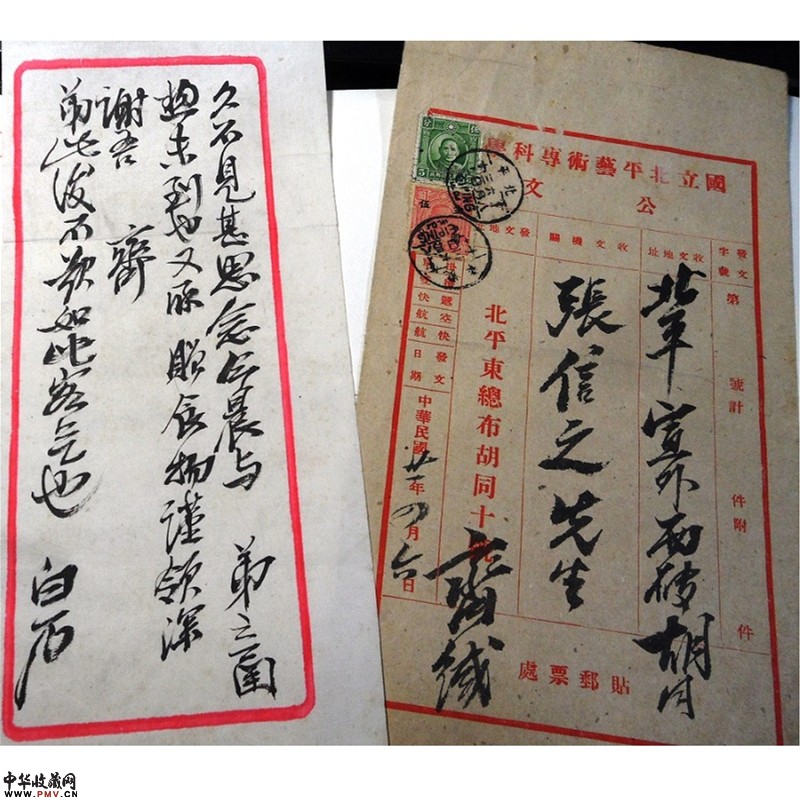 久不見甚思念今晨与 弟之函
想未到也又承 賜食物謹領深
謝吾 齋
弟此後不敢如此客气也 白石
國立北平藝術專科學
公 文
發文 字號
第 號計 件附 件
收文地址
北平 宣外 西 胡同
收文機關
張信之先生
發文地址
北平東總布胡同十號
齊緘
掛號 快 航
遞 空 快 航
發文日期
中華民國 年 四月六日
貼郵票處
中华收藏网
www.PMV.CN